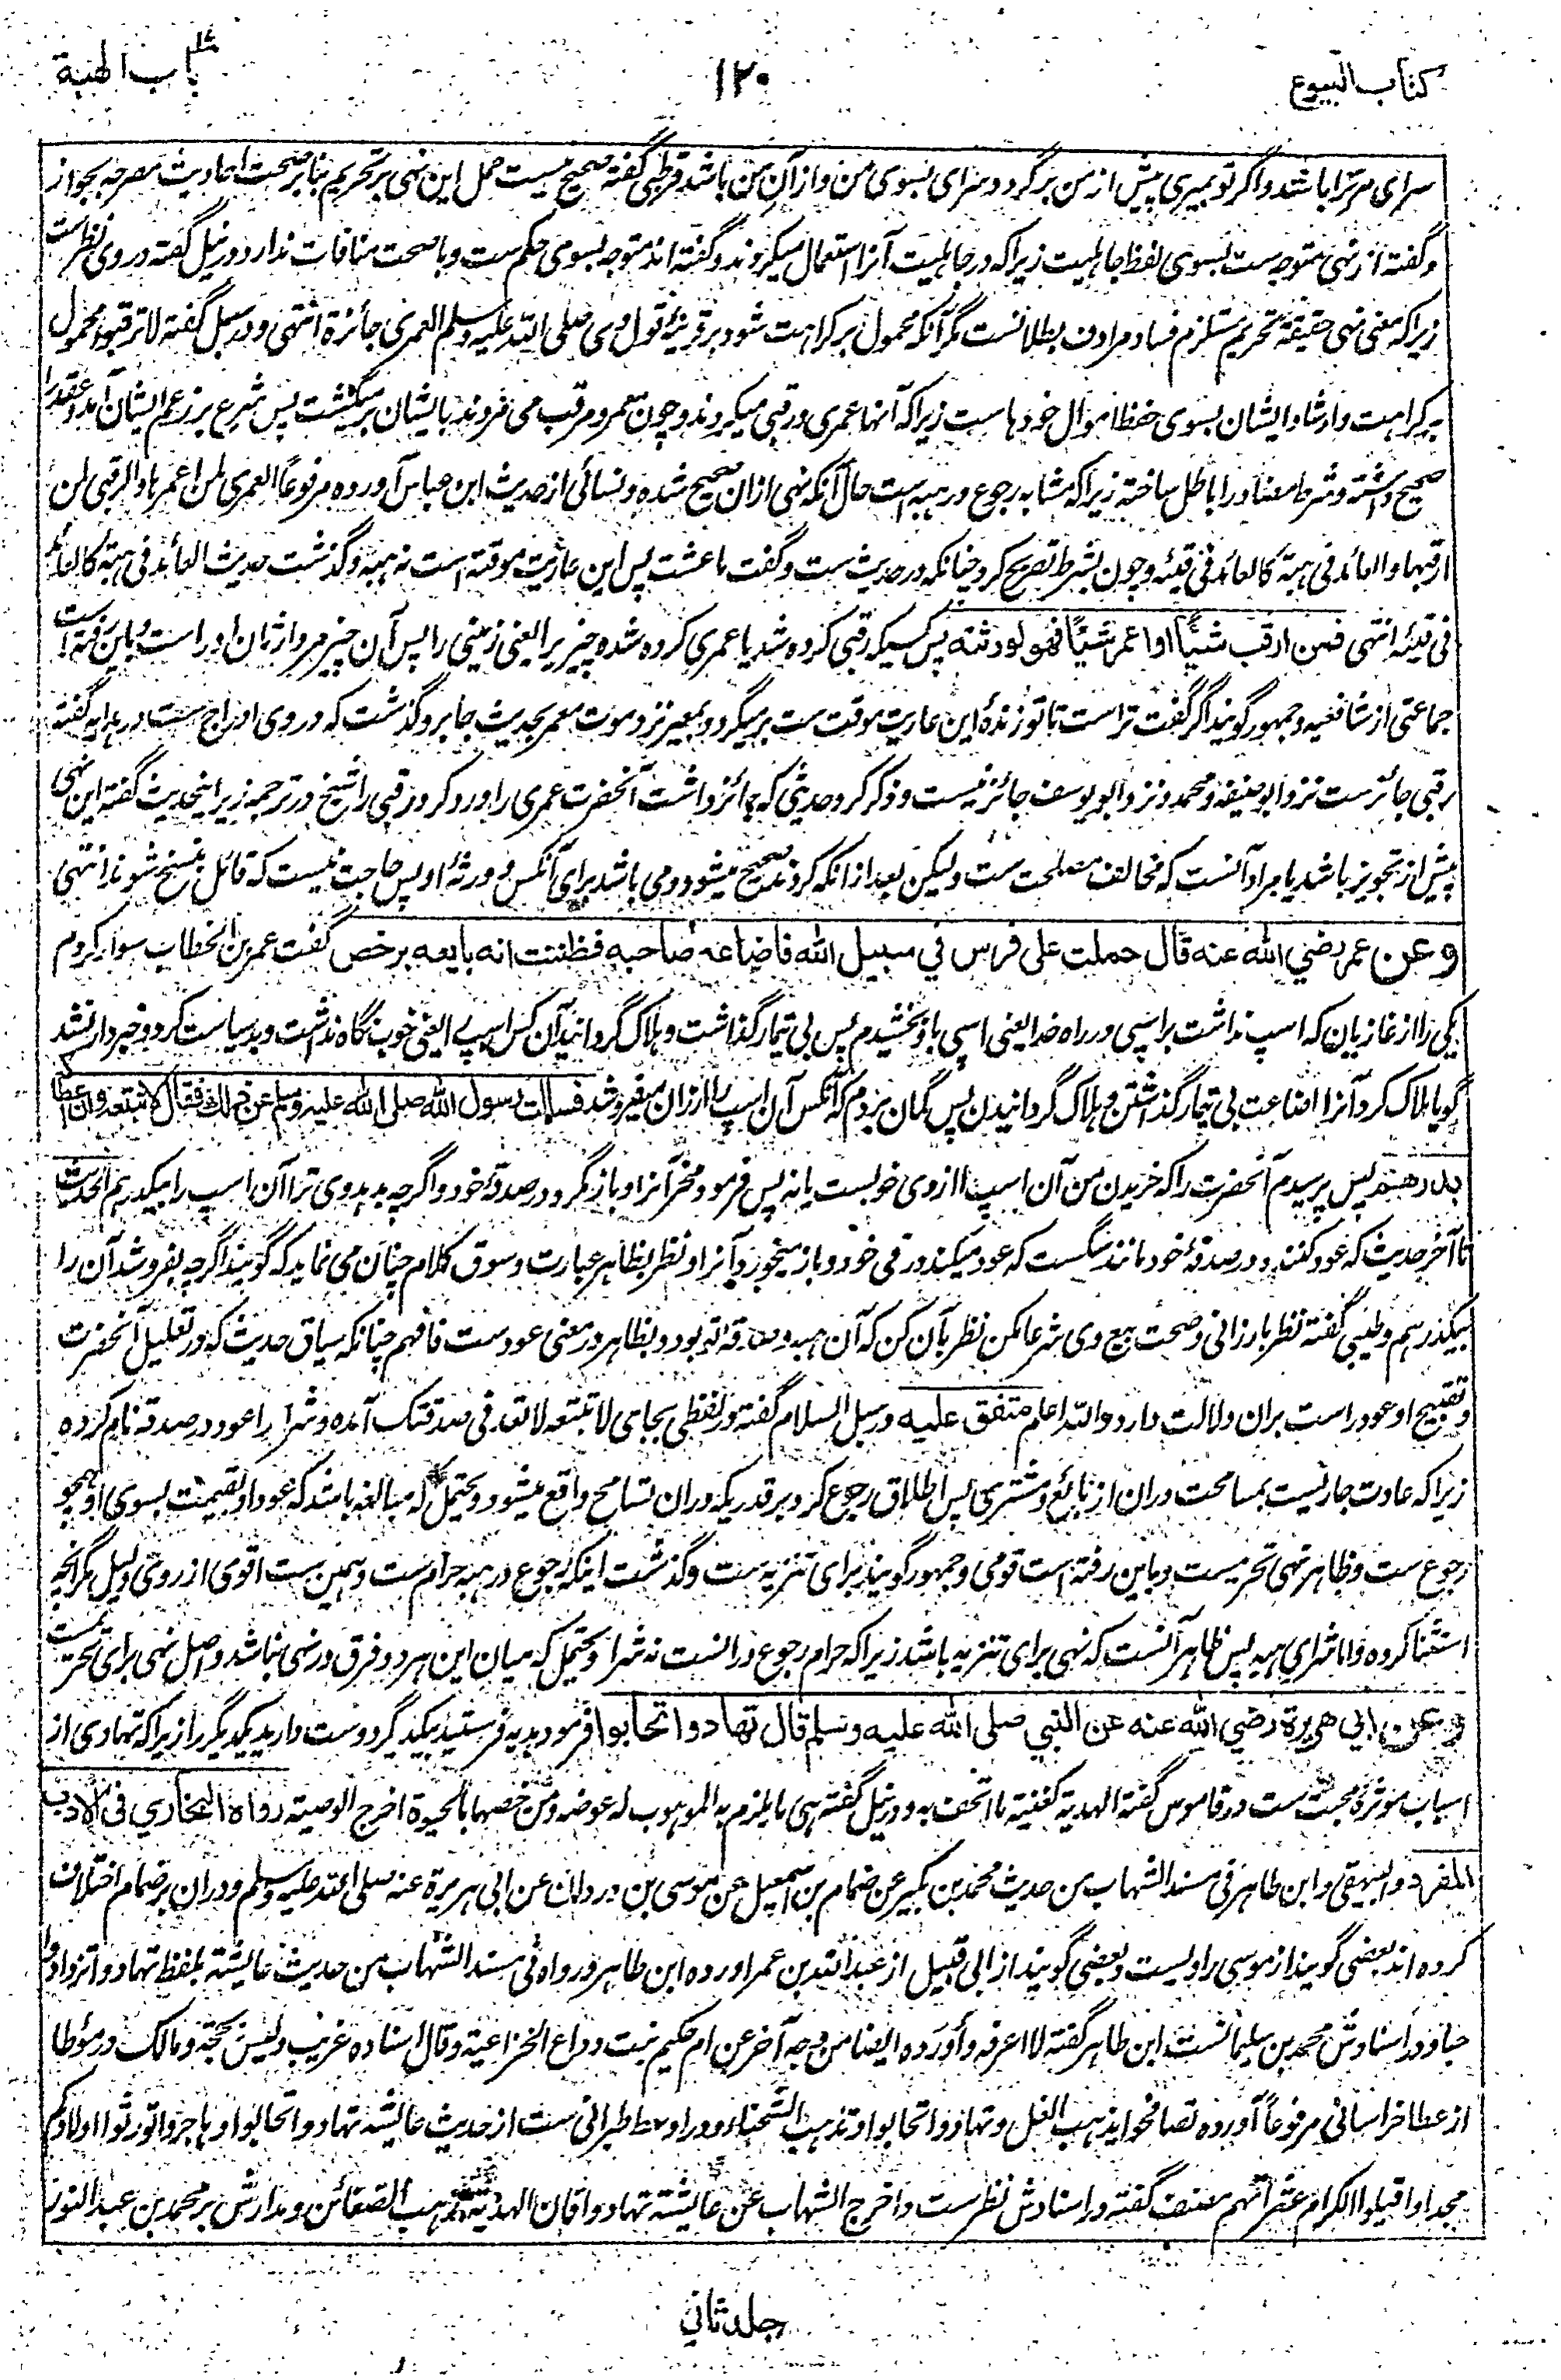 کتاب البیوع
۱۲۰
باب الهبة
سرای مر ترا باشد و اگر تو بمیری پیش از من برگردد سرای بسوی من و از آن من باشد قرطبی گفته صحیح نیست حمل این نهی بر تحریم بنا بر صحت احادیث مصرحه بجواز
و گفته اند نهی متوجه ست بسوی لفظ جاهلیت زیرا که در جاهلیت آنرا استعمال میکردند و گفته اند متوجه بسوی حکم ست و با صحت منافات ندارد و در نیل گفته و در وی نظرست
زیرا که معنی نهی حقیقة تحریم مستلزم فساد مرادف بطلانست مگر آنکه محمول بر کراهت شود بر قرینهٔ قول وی صلی الله علیه وسلم العمری جائزة انتهی و در سبل گفته لا ترقبوا محمول
بر کراهت و ارشاد ایشان بسوی حفظ اموال خودهاست زیرا که آنها عمری و رقبی میکردند و چون معمر و مرقب می مردند بایشان برمیگشت پس شرع بر زعم ایشان آمد و عقد را
صحیح داشته و شرط مضاد را باطل ساخته زیرا که مشابه رجوع در هبه است حال آنکه نهی ازان صحیح شده و نسائی از حدیث ابن عباس آورده مرفوعاً العمری لمن اعمرها والرقبی لمن
ارقبها والعائد فی هبته کالعائد فی قیئه و چون بشرط تصریح کرد چنانکه در حدیث ست و گفت ما عشت پس این عاریت موقته است نه هبه و گذشت حدیث العائد فی هبته کالعائد
فی قیئه انتهی فمن ارقب شیئاً او اعمر شیئاً فهو لورثته پس کسیکه رقبی کرده شد یا عمری کرده شده چیزیرا یعنی زمینی را پس آن چیز مر وارثان او راست و باین رفته است
جماعتی از شافعیه و جمهور گویند اگر گفت تراست تا تو زندهٔ این عاریت موقت ست برمیگردد بمعیر نزد موت معمر بحدیث جابر و گذشت که در وی ادراج ست در هدایه گفته
رقبی جائز ست نزد ابوحنیفه و محمد و نزد ابو یوسف جائز نیست و ذکر کرد حدیثی که جائز داشت آنحضرت عمری را و رد کرد رقبی را شیخ در ترجمه زیر اینحدیث گفته این نهی
پیش از تجویز باشد یا مراد آنست که مخالف مصلحت ست ولیکن بعد ازانکه کردند صحیح میشود و می باشد برای آنکس و ورثهٔ او پس حاجت نیست که قائل بنسخ شوند انتهی
وعن عمر رضي الله عنه قال حملت على فرس في سبيل الله فاضاعه صاحبه فظننت انه بايعه برخص گفت عمر بن الخطاب سوار کردم
یکی را از غازیان که اسپ نداشت بر اسپی در راه خدا یعنی اسپی باو بخشیدم پس بی تیمار گذاشت و هلاک گردانید آن کس اسپ را یعنی خوب نگاه نداشت و بد سیاست کرد و خبردار نشد
گویا هلاک کرد آنرا اضاعت بی تیمار گذاشتن و هلاک گردانیدن پس گمان بردم که آنکس آن اسپ را ارزان میفروشد فسالت رسول الله صلى الله عليه وسلم عن ذلك فقال لا تبتعه وان اعطاكه
بدرهم پس پرسیدم آنحضرت را که خریدن من آن اسپ را ازوی خوبست یا نه پس فرمود مخر آنرا و باز مگرد در صدقهٔ خود و اگرچه بدهد وی ترا آن اسپ را بیکدرهم الحدیث
تا آخر حدیث که عود کننده در صدقهٔ خود مانند سگست که عود میکند در قی خود و باز میخورد آنرا و نظر بظاهر عبارت و سوق کلام چنان می نماید که گویند اگرچه بفروشد آن را
بیکدرهم و طیبی گفته نظر بارزانی و صحت بیع وی شرعا مکن نظر بآن کن که آن هبه و صدقهٔ تو بود و بظاهر در معنی عودست فافهم چنانکه سیاق حدیث که در تعلیل آنحضرت
و تقبیح او عود راست بران دلالت دارد والله اعلم متفق علیه در سبل السلام گفته در لفظی بجای لا تبتعه لا تعد فی صدقتک آمده و شرا را عود در صدقه نام کرده
زیرا که عادت جاریست بمسامحت دران از بائع و مشتری پس اطلاق رجوع کرد بر قدریکه دران تسامح واقع میشود و یحتمل که مبالغه باشد که عود او بقیمت بسوی او همچو
رجوع ست و ظاهر نهی تحریمست و باین رفته است قومی و جمهور گویند برای تنزیه ست و گذشت اینکه رجوع در هبه حرام ست و همین ست اقوی از روی دلیل مگر آنچه
استثنا کرده و اما شرای هبه پس ظاهر آنست که نهی برای تنزیه باشد زیرا که حرام رجوع درانست نه شرا و یحتمل که میان این هر دو فرق در نهی نباشد و اصل نهی برای تحریمست
وعن ابي هريرة رضي الله عنه عن النبي صلى الله عليه وسلم قال تهادوا تحابوا فرمود هدیه فرستید بیکدیگر و دوست دارید یکدیگر را زیرا که تهادی از
اسباب مؤثرهٔ محبت ست در قاموس گفته الهدیة کغنیة ما اتحف به و در نیل گفته هی ما یلزم به الموهوب له عوضه و من خصها بالحیوة اخرج الوصیة رواه البخاري في الادب
المفرد و البیهقی و ابن طاهر فی مسند الشهاب من حدیث محمد بن بکیر عن ضمام بن اسمعیل عن موسی بن وردان عن ابی هریرة عنه صلی الله علیه وسلم و دران بر ضمام اختلاف
کرده اند بعضی گویند از موسی راویست و بعضی گویند از ابی قبیل از عبد الله بن عمر آورده ابن طاهر و رواه فی مسند الشهاب من حدیث عائشة بلفظ تهادوا تزدادوا
حبا و در اسنادش محمد بن سلیمانست ابن طاهر گفته لا اعرفه و آورده ایضا من وجه آخر عن ام حکیم بنت وداع الخزاعیة وقال اسناده غریب ولیس بحجة و مالک در مؤطا
از عطا خراسانی مرفوعاً آورده تصافحوا یذهب الغل وتهادوا تحابوا وتذهب الشحناء و در اوسط طبرانی ست از حدیث عائشه تهادوا تحابوا وهاجروا تورثوا اولادکم
مجدا واقیلوا الکرام عثراتهم مصنف گفته در اسنادش نظرست و اخرج الشهاب عن عائشة تهادوا فان الهدیة تذهب الضغائن و مدارش بر محمد بن عبد النور
جلد ثاني